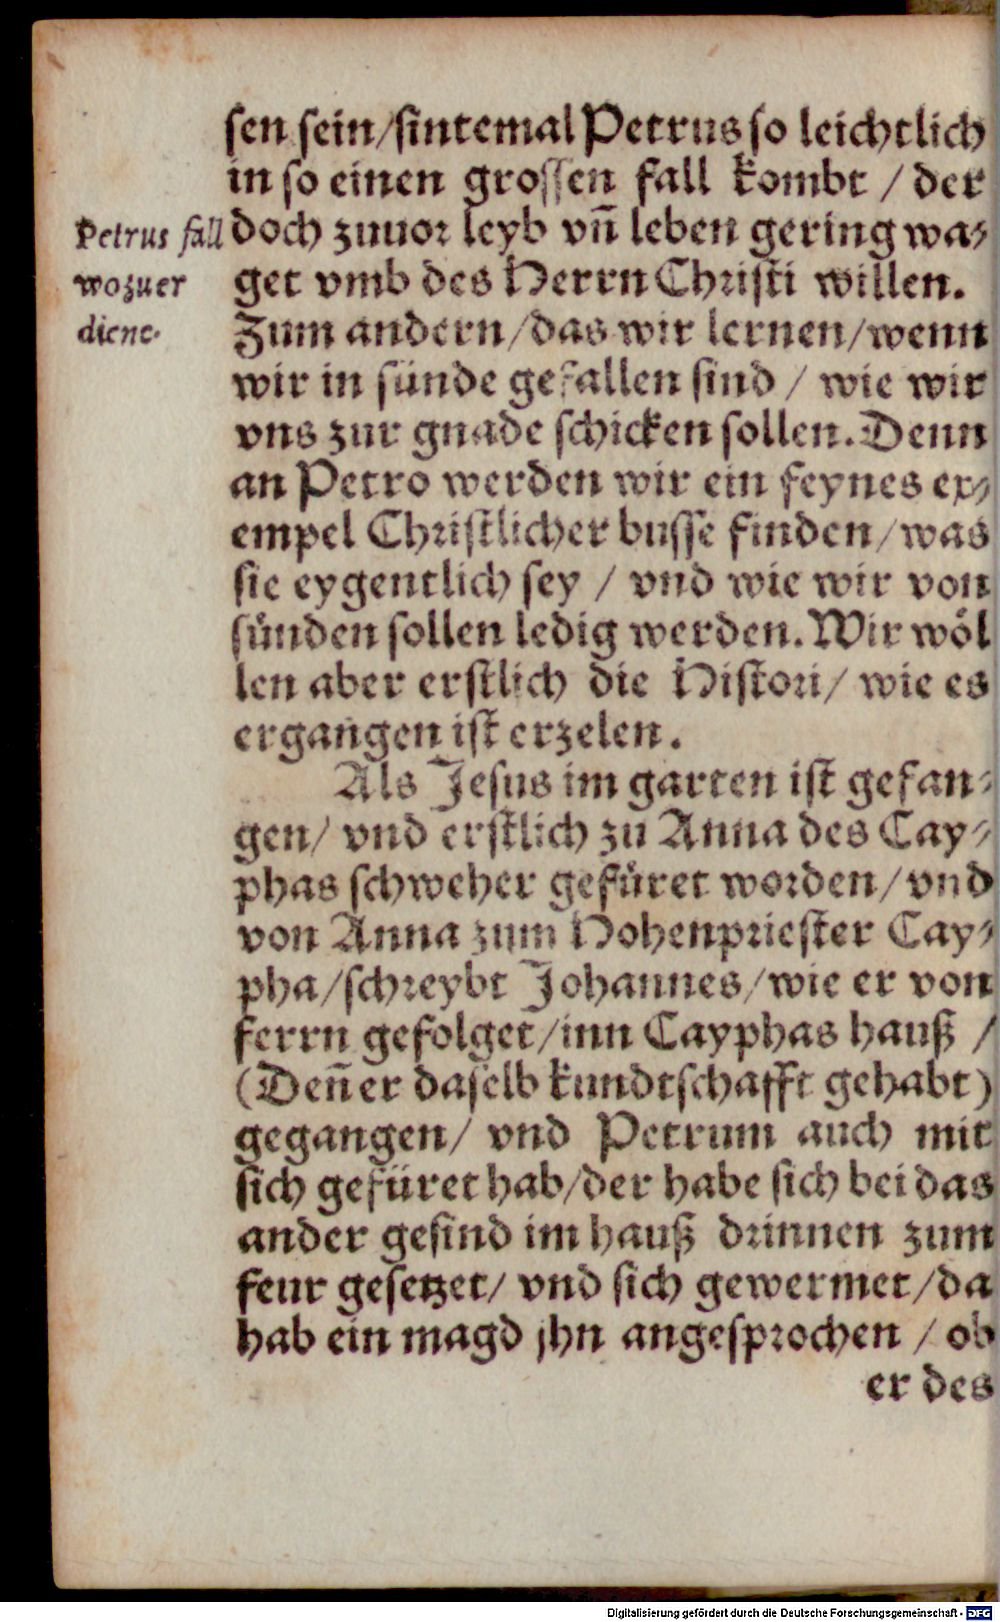 sen sein/sintemal Petrus so leichtlich
in so einen grossen fall kombt / der
doch zuuor leyb vn̄ leben gering wa⸗
get vmb des Herrn Christi willen.
Petrus fall
wozu er
diene.
Zum andern/das wir lernen/wenn
wir in sünde gefallen sind / wie wir
vns zur gnade schicken sollen. Denn
an Petro werden wir ein feynes ex⸗
empel Christlicher busse finden/was
sie eygentlich sey / vnd wie wir von
sünden sollen ledig werden. Wir wöl
len aber erstlich die Histori/ wie es
ergangen ist erzelen.
Als Jesus im garten ist gefan⸗
gen/ vnd erstlich zu Anna des Cay⸗
phas schweher gefüret worden/vnd
von Anna zum Hohenpriester Cay⸗
pha/schreybt Johannes/wie er von
ferrn gefolget/inn Cayphas hauß /
(Den̄ er daselb kundtschafft gehabt)
gegangen/ vnd Petrum auch mit
sich gefüret hab/der habe sich bei das
ander gesind im hauß drinnen zum
feur gesetzet/ vnd sich gewermet/da
hab ein magd jhn angesprochen / ob
er des
Digitalisierung gefördert durch die Deutsche Forschungsgemeinschaft - DFG